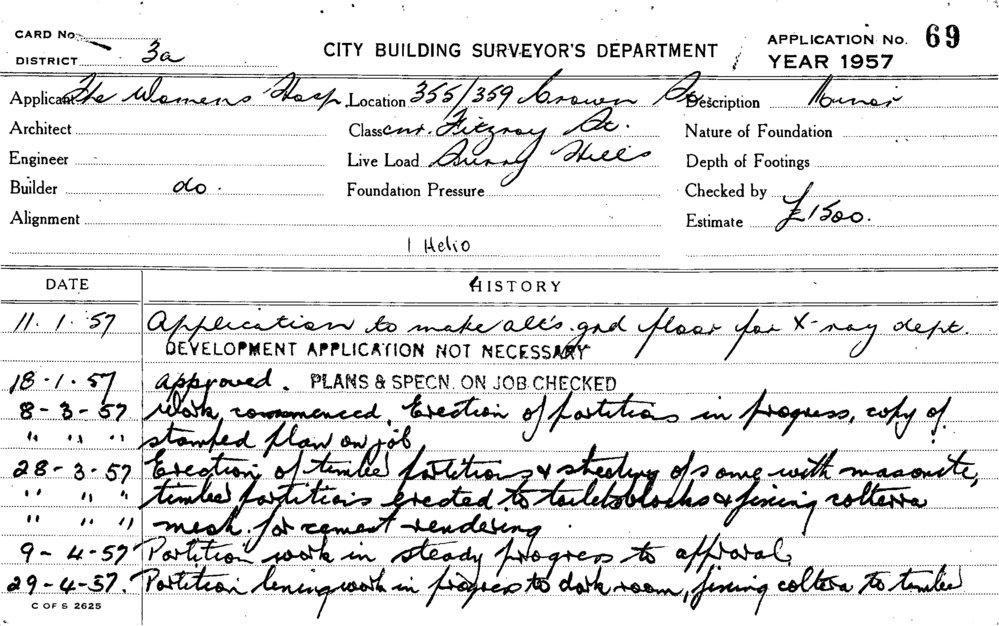 CARD No.
DISTRICT 3a
CITY BUILDING SURVEYOR'S DEPARTMENT
APPLICATION No. 69
YEAR 1957
Applicant The Womens Hosp. Location 355/359 Crown St. Description Minor
Architect Class cnr. Fitzroy St. Nature of Foundation
Engineer Live Load Surry Hills Depth of Footings
Builder do. Foundation Pressure Checked by
Alignment Estimate £1500.
1 Helio
DATE HISTORY
11.1.57 Application to make alt's. grd floor for X-ray dept.
DEVELOPMENT APPLICATION NOT NECESSARY
18-1-57 approved. PLANS & SPECN. ON JOB CHECKED
8-3-57 Work commenced. Erection of partitions in progress, copy of
" " " stamped plan on job
28-3-57 Erection of timber partitions & sheeting of same with masonite,
" " " timber partitions erected to toilets blocks & fixing colterra
" " " mesh for cement rendering.
9-4-57 Partition work in steady progress to approval.
29-4-57. Partition lining work in progress to dark room, fixing coltera to timber
C OF S 2625